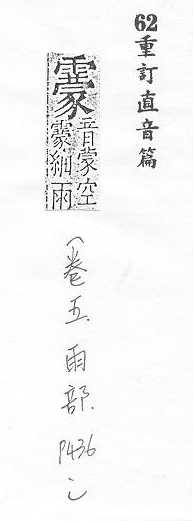 62重訂直音篇
霥
音蒙空
霥細雨
(卷五.雨部.P436)